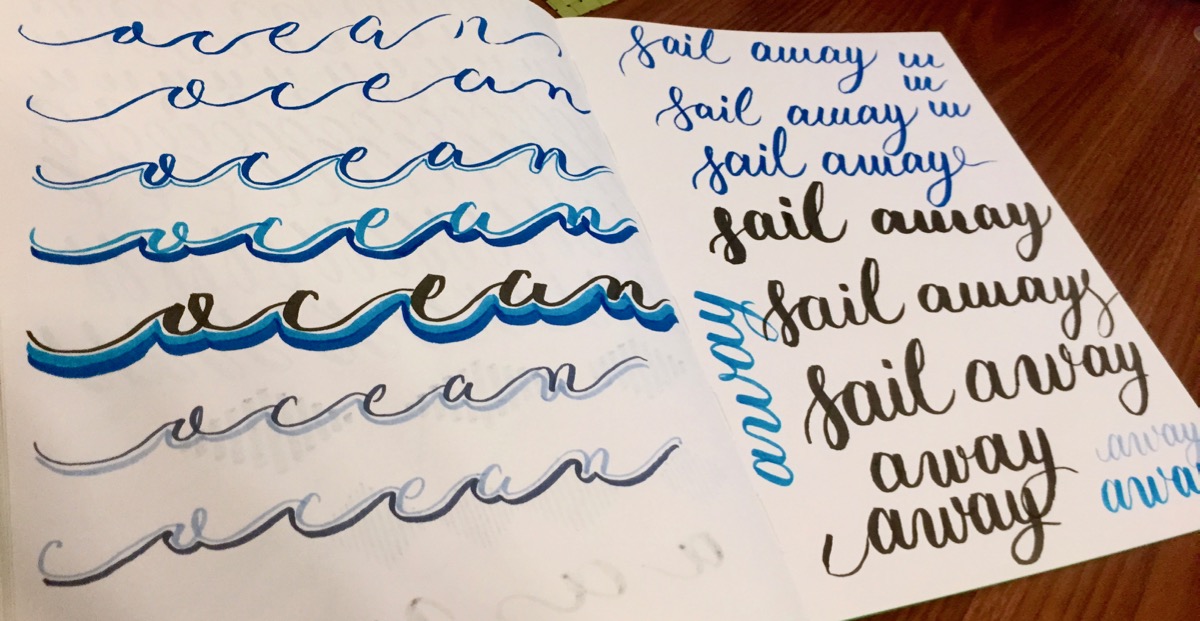 ocean
ocean
ocean
ocean
ocean
ocean
ocean
sail away w
w
sail away w
sail away
sail away
sail aways
sail away
away
away
away
away
away